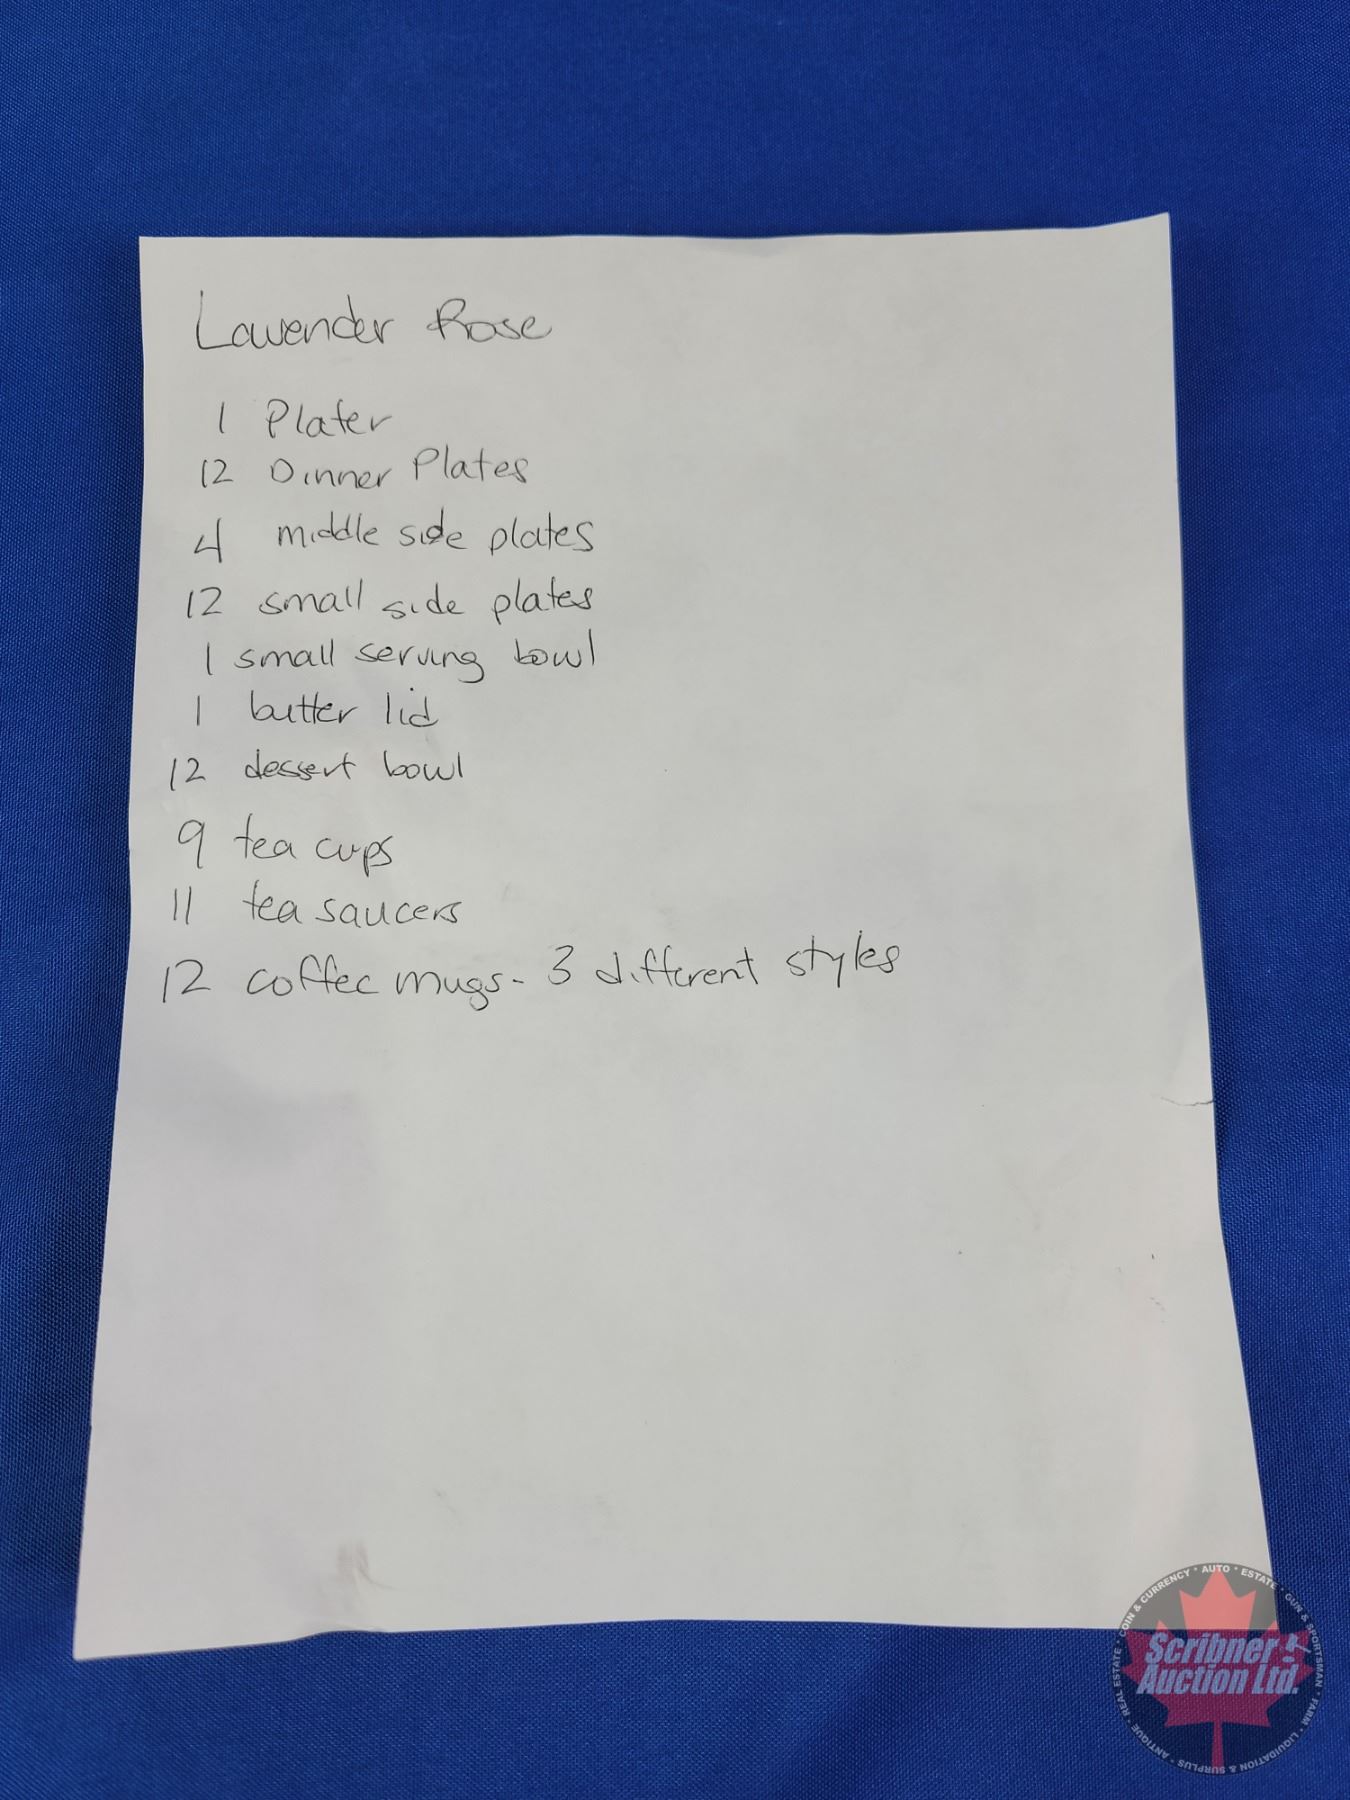 Lavender Rose
1 Plater
12 Dinner Plates
4 middle side plates
12 small side plates
1 small serving bowl
1 butter lid
12 dessert bowl
9 tea cups
11 tea saucers
12 coffee mugs - 3 different styles
COIN & CURRENCY • AUTO • ESTATE • GUN & SPORTSMAN • FARM • LIQUIDATION & SURPLUS • ANTIQUE • REAL ESTATE •
Scribner
Auction Ltd.